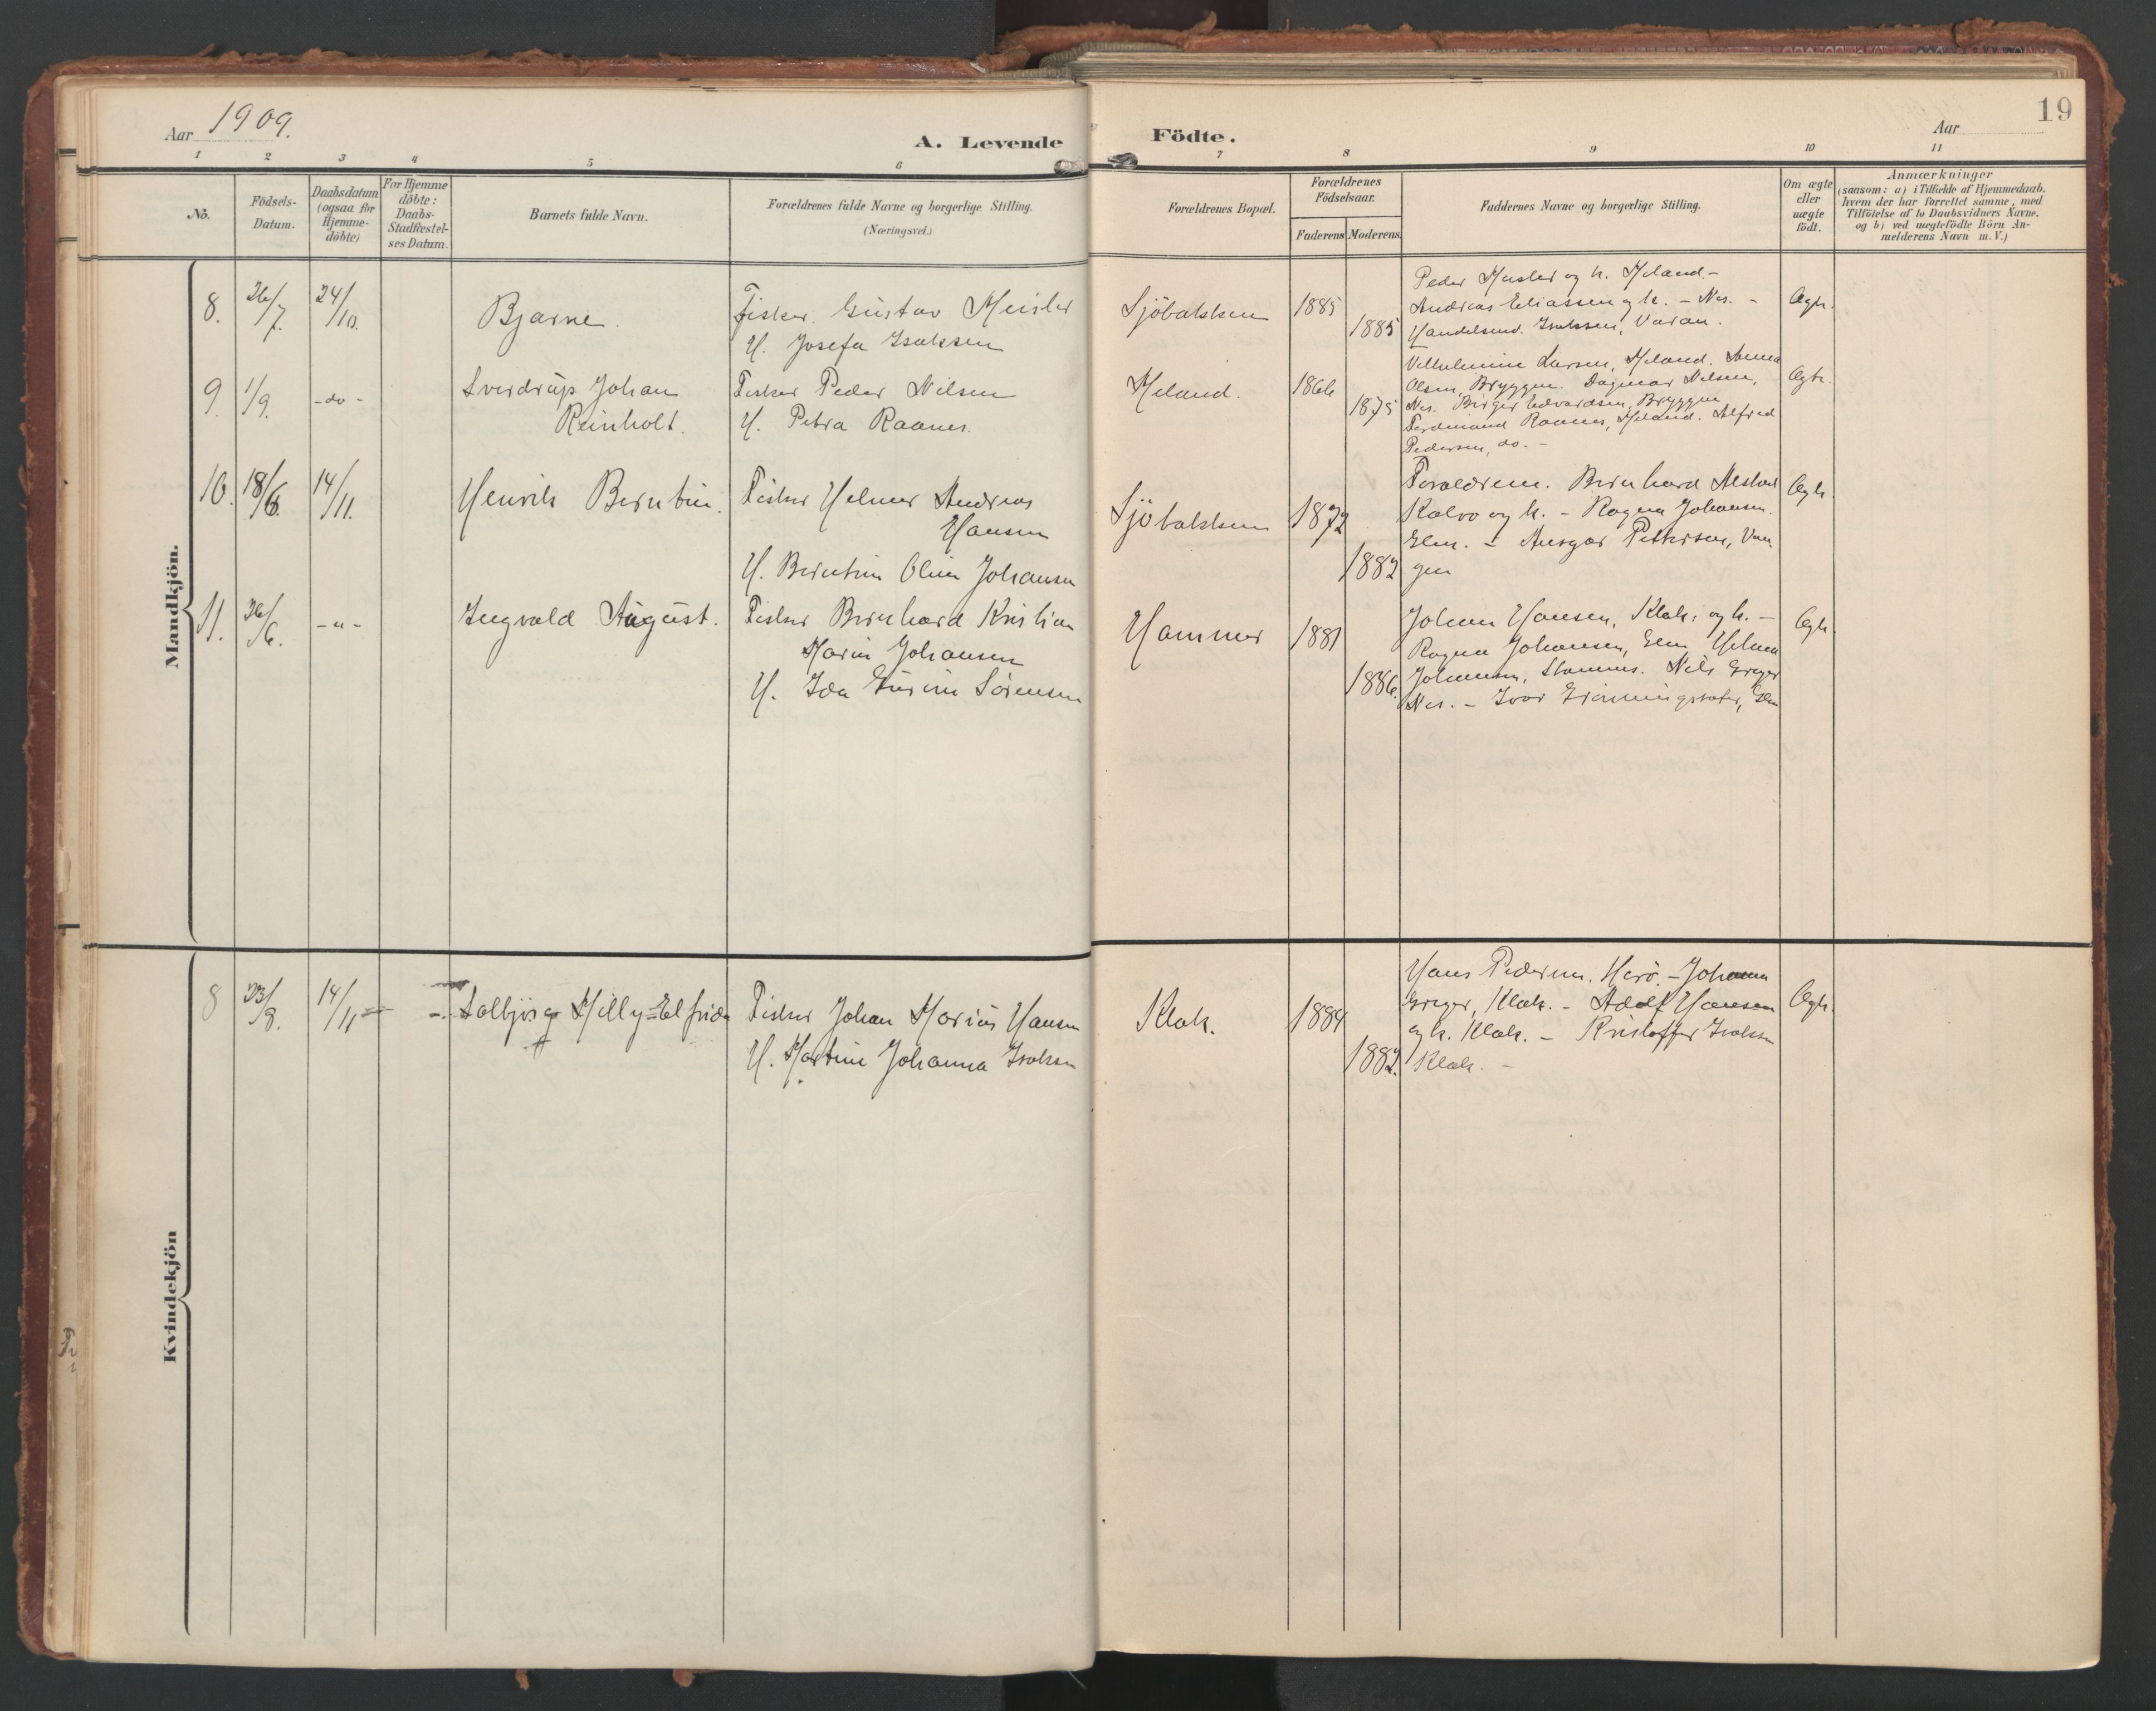 Aar 1909.
A. Levende
Födte.
Aar
19
1 2 3 4 5 6 7 8 9 10 11
No.
Födsels-
Datum.
Daabsdatum
(ogsaa for
Hjemme-
döbte)
For Hjemme
döbte:
Daabs-
Stadfæstel-
ses Datum.
Barnets fulde Navn.
Forældrenes fulde Navne og borgerlige Stilling.
(Næringsvei.)
Forældrenes Bopæl.
Forældrenes
Födselsaar.
Faderens
Moderens
Faddernes Navne og borgerlige Stilling.
Om ægte
eller
uægte
födt.
Anmærkninger
(saasom: a) i Tilfælde af Hjemmedaab.
hvem der har forrettet samme, med
Tilföielse af to Daabsvidners Navne.
og b) ved uægtefödte Börn An-
melderens Navn m. V.)
Mandkjön.
8. 26/7. 24/10.
Bjarne.
Fisker Gustav
H. Josefa Isaksen
Sjöbakken
1885
1885
Peder og h. Meland.-
Andreas Eliassen og h. - Nes. -
Handelsmd. Isaksen,
Ægte.
9. 1/9. -do-
Sverdrup Johan
Reinholt.
Fisker Peder Nilsen
H. Petra Raanes
Meland.
1866
1875
Vilhelmine Larsen, Meland. Anna
Olsen, Bryggen. Dagmar Nilsen,
Nes. Birger Edvardsen, Bryggen
Ferdinand Raanes, Meland. Alfred
Pedersen, do. -
Ægte.
10. 18/6. 14/11.
Henrik Berntin.
Fisker Helmer Andreas
Hansen
H. Berntine Oline Johansen
Sjöbakken
1872
1882
Forældrene. Bernhard
og h. - Ragna Johansen.
Elm. - Ansgar Pettersen, Van
gen
Ægte.
11. 26/6. -"-
Ingvald August.
Fisker Bernhard Kristian
Marin Johansen
H. Ida Sörensen
Hammer
1881
1886.
Johan Hansen, Klak, og h. -
Ragna Johansen, Elm, Helma
Johansen, Nils Greger
Nes. - Ivar Elm
Ægte.
Kvindekjön
8 23/8. 14/11
Solbjörg Milly=Elfrida
Fisker Johan Marius Hansen
H. Martine Johanna Isaksen
Klak.
1884
1882.
Hans Pedersen. Herö. - Johanna
Greger, Klak. - Adolf Hansen
og h. Klak. - Kristoffer Isaksen
Klak. -
Ægte.